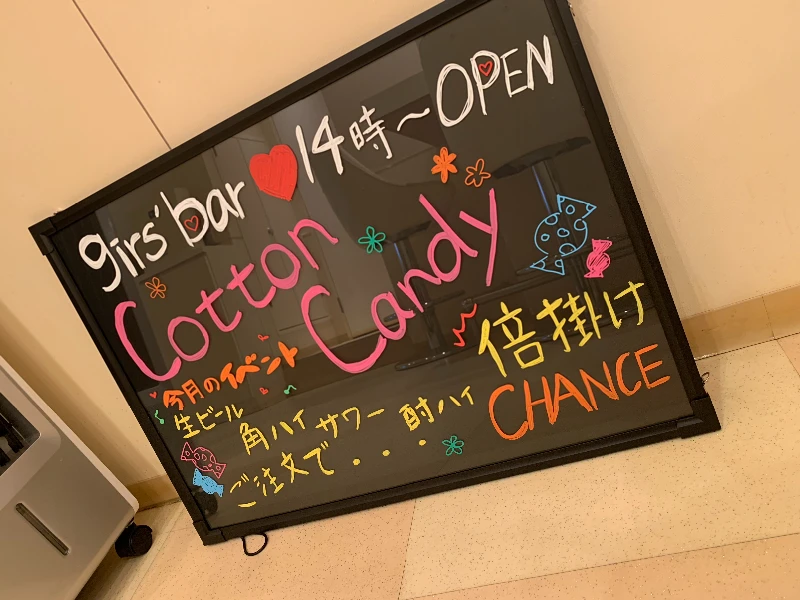 girs' bar ♥ 14時〜OPEN
Cotton Candy
今月のイベント
生ビール 角ハイ サワー 酎ハイ
ご注文で・・・
倍掛け
CHANCE